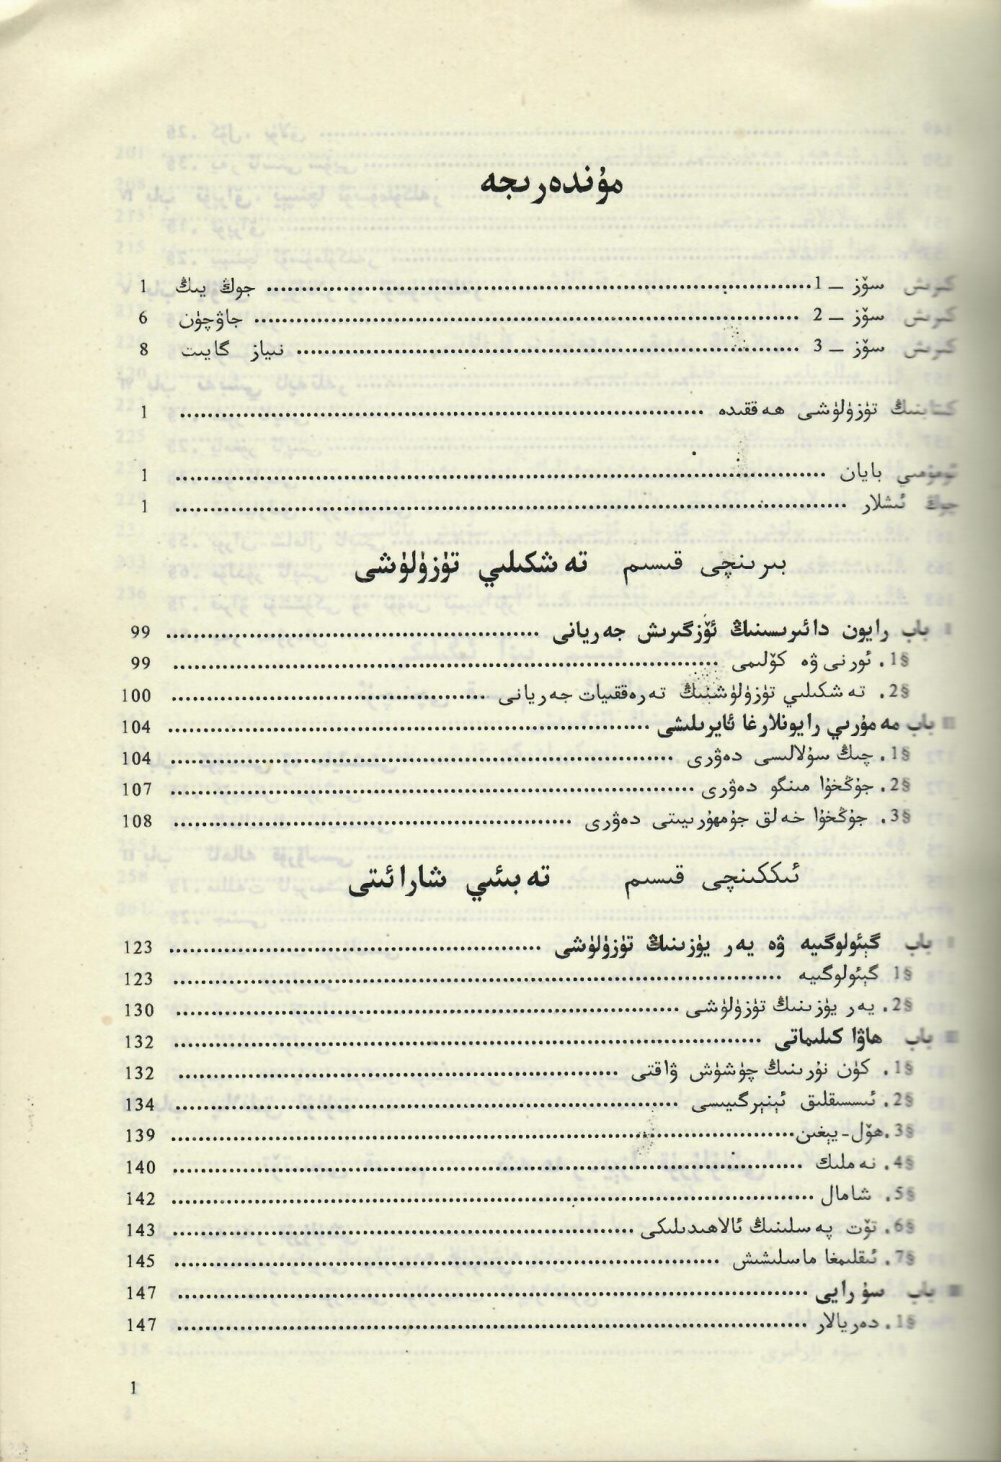 مۇندەرىجە
كىرىش سۆز ــ 1 جوڭ يىڭ 1
كىرىش سۆز ــ 2 جاۋچۈن 6
كىرىش سۆز ــ 3 نىياز گايىت 8
كىتابنىڭ تۈزۈلۈشى ھەققىدە 1
ئومۇمىي بايان 1
چوڭ ئىشلار 1
بىرىنچى قىسىم تەشكىلىي تۈزۈلۈشى
باب رايون دائىرىسىنىڭ ئۆزگىرىش جەريانى 99
§1. ئورنى ۋە كۆلىمى 99
§2. تەشكىلىي تۈزۈلۈشىنىڭ تەرەققىيات جەريانى 100
باب مەمۇرىي رايونلارغا ئايرىلىشى 104
§1. چىڭ سۇلالىسى دەۋرى 104
§2. جۇڭخۇا مىنگو دەۋرى 107
§3. جۇڭخۇا خەلق جۇمھۇرىيىتى دەۋرى 108
ئىككىنچى قىسىم تەبىئىي شارائىتى
باب گېئولوگىيە ۋە يەر يۈزىنىڭ تۈزۈلۈشى 123
§1 گېئولوگىيە 123
§2. يەر يۈزىنىڭ تۈزۈلۈشى 130
باب ھاۋا كىلىماتى 132
§1. كۈن نۇرىنىڭ چۈشۈش ۋاقتى 132
§2. ئىسسىقلىق ئېنېرگىيىسى 134
§3. ھۆل-يېغىن 139
§4. نەملىك 140
§5. شامال 142
§6. تۆت پەسىلنىڭ ئالاھىدىلىكى 143
§7. ئىقلىمغا ماسلىشىش 145
باب سۇ رايى 147
§1. دەريالار 147
1